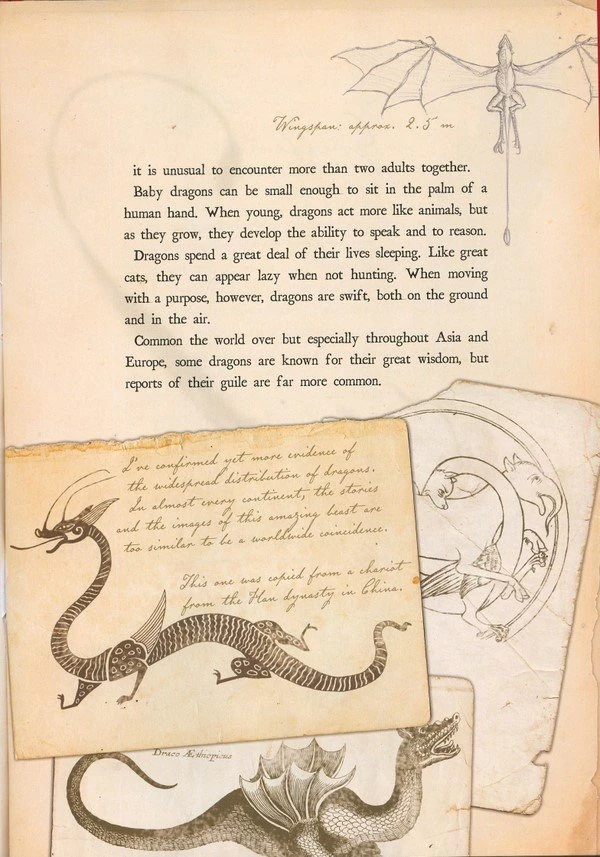 Wingspan: approx. 2.5 m
it is unusual to encounter more than two adults together.
Baby dragons can be small enough to sit in the palm of a
human hand. When young, dragons act more like animals, but
as they grow, they develop the ability to speak and to reason.
Dragons spend a great deal of their lives sleeping. Like great
cats, they can appear lazy when not hunting. When moving
with a purpose, however, dragons are swift, both on the ground
and in the air.
Common the world over but especially throughout Asia and
Europe, some dragons are known for their great wisdom, but
reports of their guile are far more common.
I've confirmed yet more evidence of
the widespread distribution of dragons.
In almost every continent, the stories
and the images of this amazing beast are
too similar to be a worldwide coincidence.
This one was copied from a chariot
from the Han dynasty in China.
Draco Æthiopicus